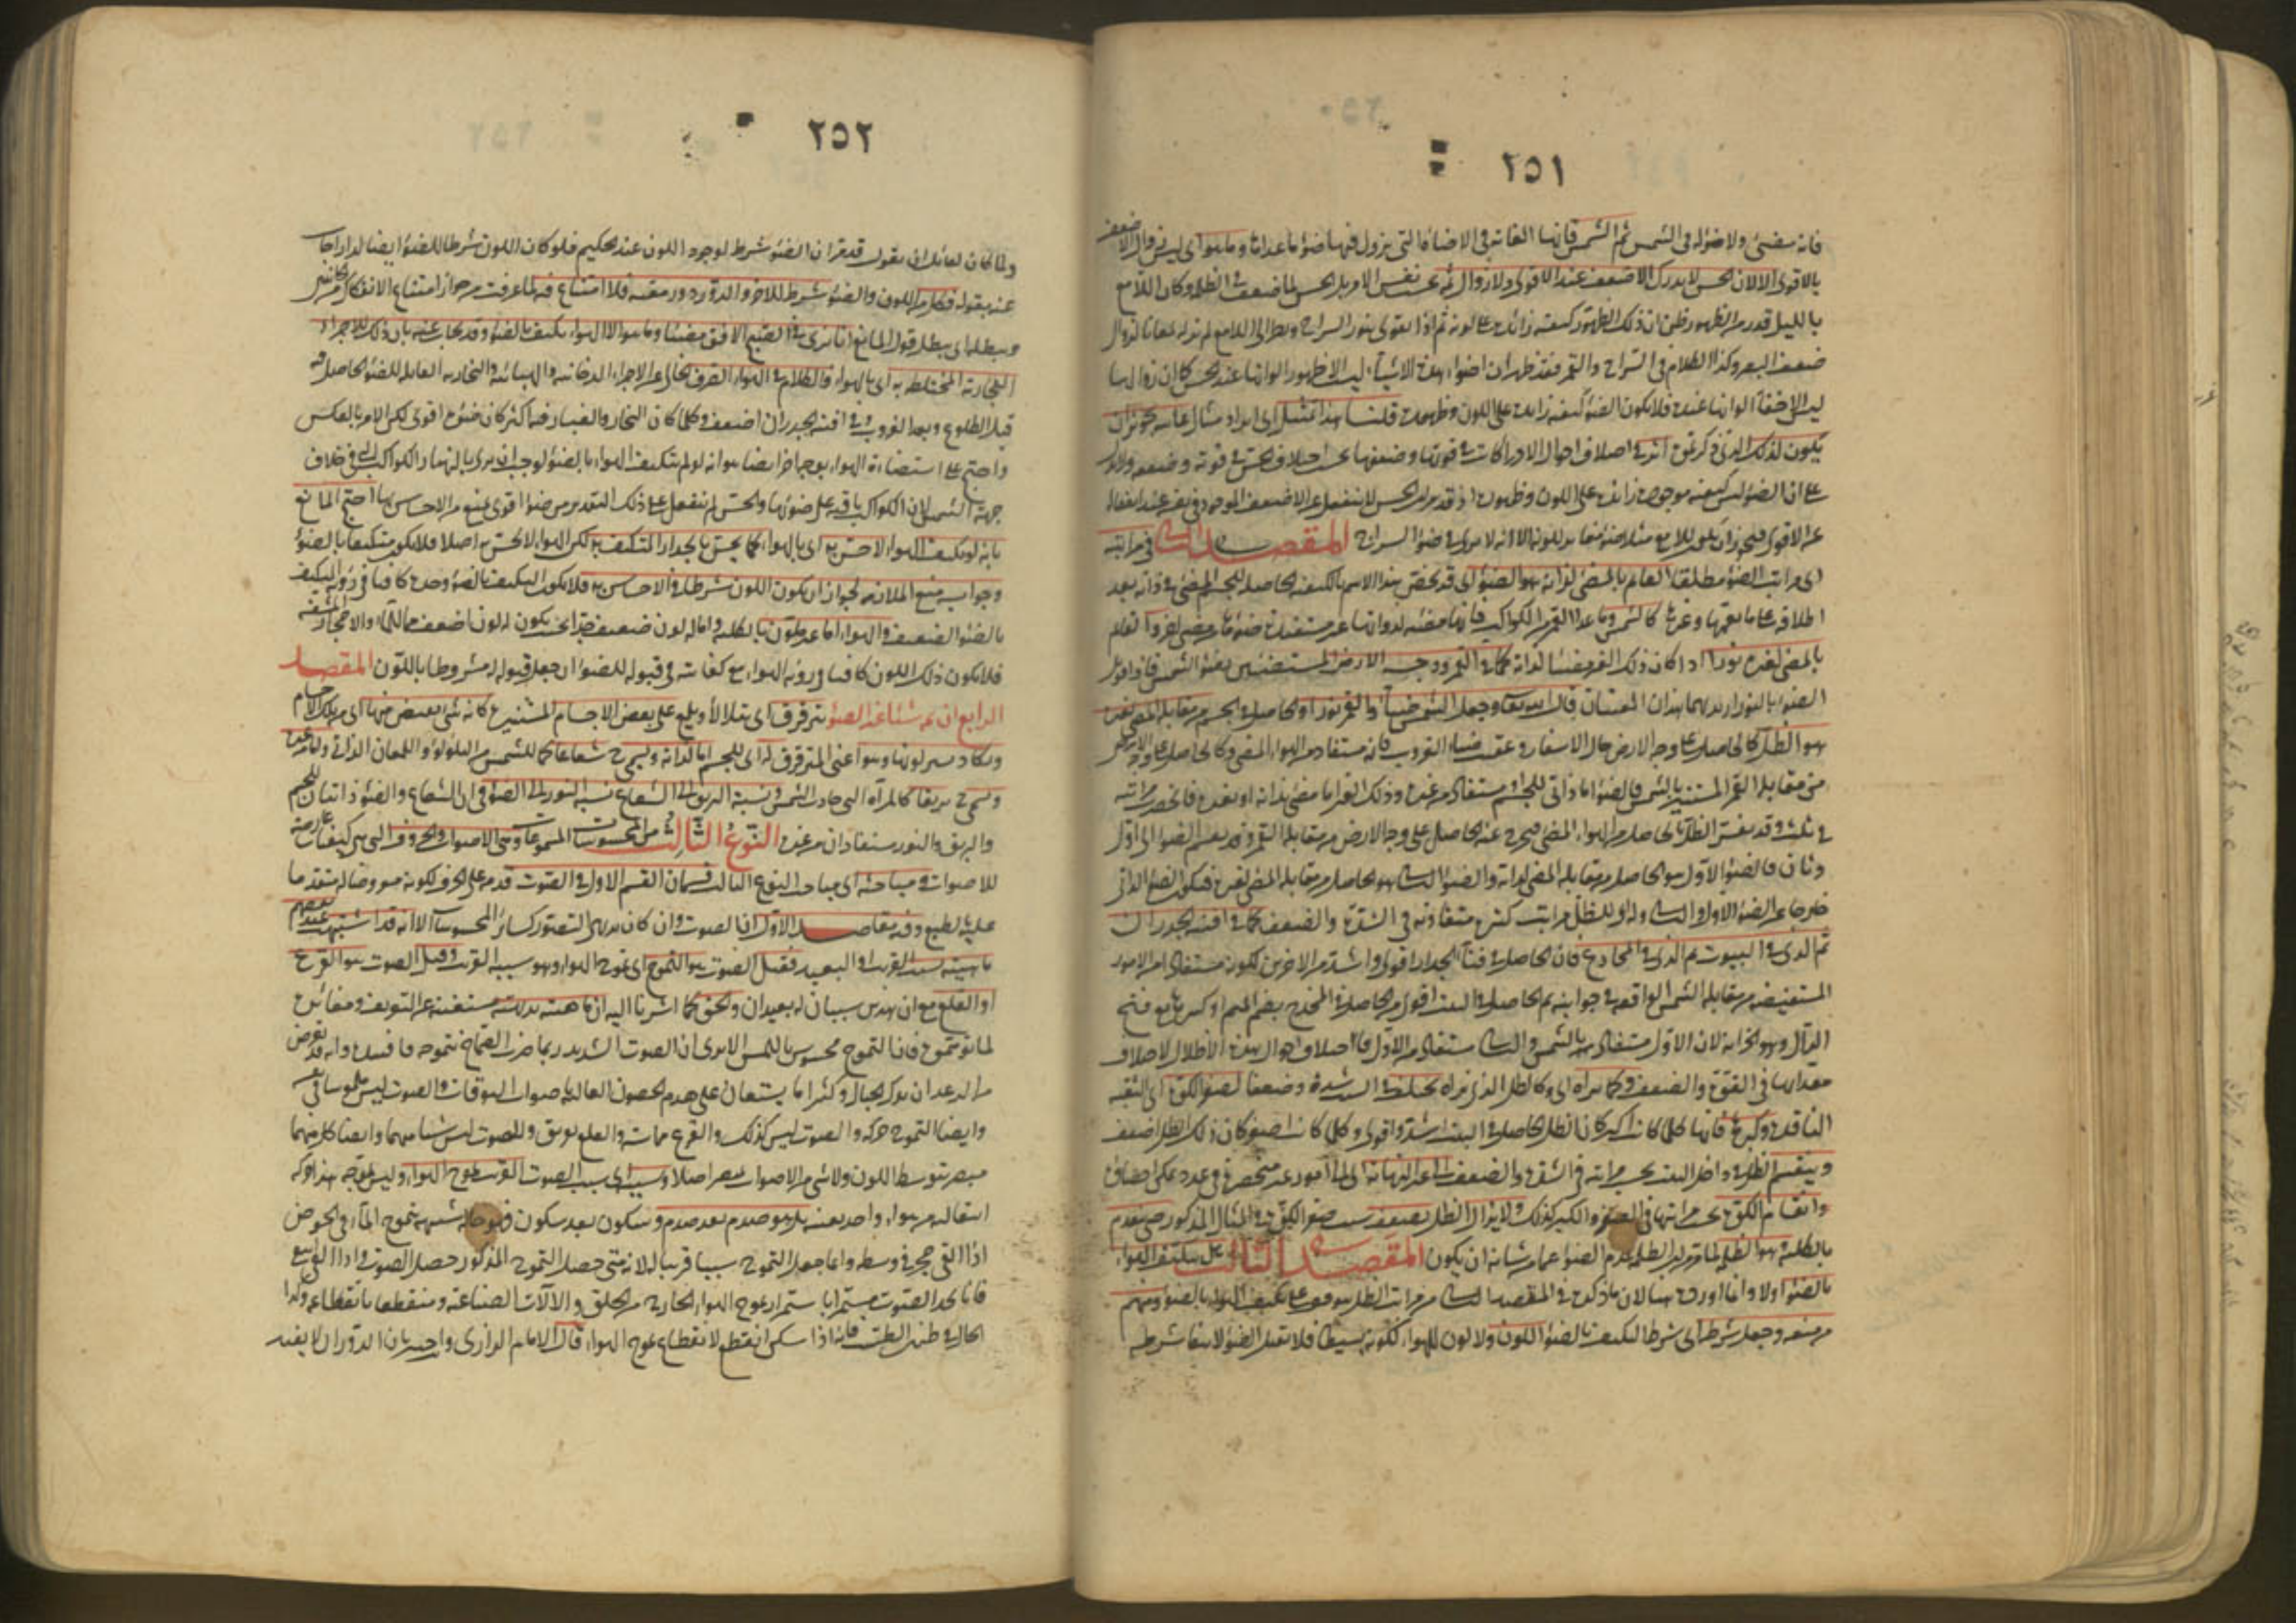 ٢٥١
فانه يضئ ولا ضوء له في الشمس ثم الشمس فانها الغاية في الاضاءة التي يزول فيها ضوء ما عداها وما هو اى ليس زوال الاضعف
بالاقوى الا لان الحس لا يدرك الاضعف عند الاقوى ولا زوال ثمة بحسب نفس الامر بل الحس لما ضعف في الظلمة وكان اللامع
بالليل قدر من الظهور ظن ان ذلك الظهور كيفية زائدة على لونه ثم اذا تقوى بنور السراج ونظر الى اللامع لم ير له لمعانا لزوال
ضعف البصر وكذا الكلام في السراج والقمر فقد ظهر ان اضواء هذه الاشياء ليست الا ظهور الوانها عند الحس كما ان زوالها
ليس الا خفاء الوانها عنده فلا يكون الضوء كيفية زائدة على اللون وظهوره قلنا هذا تمثيل اى ايراد مثال غايته تجويز ان
يكون لذلك الذى ذكرتموه اثر في اختلاف احوال الادراكات في قوتها وضعفها بحسب اختلاف الحس في قوته وضعفه ولا يدل
على ان الضوء ليس كيفية موجودة زائدة على اللون وظهوره اذ قد مر ان الحس لا ينفعل عن الاضعف الموجود في نفسه عند انفعاله
عن الاقوى فيجوز ان يكون للامع مثلا ضوء مغاير للونه الا انه لا يرى في ضوء السراج المقصد الثانى في مراتبه
اى مراتب الضوء مطلقا القائم بالمضئ لذاته هو الضوء اى قد يخص هذا الاسم بالكيفية الحاصلة للجسم المضئ في ذاته بعد
اطلاقه على ما يعمها وغيرها كالشمس وما عدا القمر من الكواكب فانها مضيئة لذواتها غير مستفيدة ضوءها من مضئ آخر والقائم
بالمضئ لغيره نور اذا كان ذلك الغير مضيئا لذاته كما في القمر ووجه الارض المستضيئين بضوء الشمس فاذا قوبل
الضوء بالنور اريد بهما هذان المعنيان قال الله تعالى وجعل الشمس ضياء والقمر نورا والحاصل في الجسم من مقابلة المضئ لغيره
هو الظل كالحاصل على وجه الارض حال الاسفار وعقيب غيب الغروب فانه مستفاد من الهواء المضئ وكالحاصل على وجه الارض
من مقابلة القمر المستنير بالشمس فالضوء اما ذاتى للجسم او مستفاد من غيره وذلك الغير اما مضئ بذاته او بغيره فانحصر مراتبه
في ثلث وقد يفسر الظل بالحاصل من الهواء المضئ فيخرج عنه الحاصل على وجه الارض من مقابلة القمر وقد يقسم الضوء الى اول
وثان فالضوء الاول هو الحاصل من مقابلة المضئ لذاته والضوء الثانى هو الحاصل من مقابلة المضئ لغيره فيكون الضوء الذاتى
خارجا عن الضوء الاول والثانى وله اى للظل مراتب كثيرة متفاوتة في الشدة والضعف كما في افنية الجدران
ثم الذى في البيوت ثم الذى في المخادع فان الحاصل في فناء الجدار اقوى واشد من الآخرين لكونه مستفادا من الامور
المستضيئة من مقابلة الشمس الواقعة في جوانبه ثم الحاصل في البيت اقوى من الحاصل في المخدع بضم الميم او كسرها مع فتح
الدال وهو الخزانة لان الاول مستفاد من المضئ بالشمس والثانى مستفاد من الاول فاختلاف احوال هذه الاظلال لاختلاف
معداتها في القوة والضعف وكما نراه اى وكالظل الذى نراه يختلف في البيت شدة وضعفا لصغر الكوة اى الثقبة
النافذة وكبرها فانها كلما كانت اكبر كان الظل الحاصل في البيت اشد واقوى وكلما كانت اصغر كان ذلك الظل اضعف
وينقسم الظل في داخل البيت بحسب مراتبه في الشدة والضعف الى غير النهاية اى الى امور غير منحصرة في عدد يمكن احصاؤه
وانقسام الكوة بحسب مراتبها في الصغر والكبر كذلك ولا يزال الظل يضعف بسبب صغر الكوة في المثال المذكور حتى ينعدم
بالكلية وهو الظلمة لما مر ان الظلمة عدم الضوء عما من شانه ان يكون المقصد الثالث هل يتكيف الهواء
بالضوء اولا وانما اورده هنا لان ما ذكره في المقصد الثانى من مراتب الظل موقوف على تكيف الهواء بالضوء ومنهم
من منعه وجعل شرطه اى شرط التكيف بالضوء اللون ولا لون للهواء لكونه بسيطا فلا يقبل الضوء لانتفاء شرطه
٢٥٢
ولما كان لقائل ان يقول قد مر ان الضوء شرط لوجود اللون عند الحكيم فلو كان اللون شرطا للضوء ايضا لدار اجاب
عنه بقوله فكل من اللون والضوء شرط للآخر والدور دور معية فلا امتناع فيه لما عرفت من جواز امتناع الانفكاك من الجانبين
ويبطله اى يبطل قول المانع انا نرى في الصبح الافق مضيئا وما هو الا الهواء تكيف بالضوء وقد يجاب عنه بان ذلك للاجزاء
البخارية المختلطة به اى بالهواء والكلام في الهواء الصرف الخالى عن الاجزاء الدخانية والهبائية والبخارية القابلة للضوء الحاصل فيه
قبل الطلوع وبعد الغروب وفي افنية الجدران اضعف وكلما كان البخار والغبار فيه اكثر كان ضوءه اقوى لكن الامر بالعكس
واحتج على استضاءة الهواء بوجه آخر ايضا هو انه لو لم يتكيف الهواء بالضوء لوجب ان يرى بالنهار الكواكب التى في خلاف
جهة الشمس لان الكواكب باقية على ضوئها والحس لم ينفعل على ذلك التقدير من ضوء اقوى يمنع من الاحساس بها احتج المانع
بانه لو تكيف الهواء لاحس به اى بالهواء كما يحس بالجدار المتكيف به لكن الهواء لا يحس به اصلا فلا يكون متكيفا بالضوء
وجوابه منع الملازمة لجواز ان يكون اللون شرطا في الاحساس به فلا يكون التكيف بالضوء وحده كافيا في رؤية المتكيف
بالضوء الضعيف والهواء اما غير ملون بالكلية واما له لون ضعيف جدا بحيث يكون له لون اضعف مما للماء والاحجار المشفة
فلا يكون ذلك اللون كافيا في رؤية الهواء مع كفايته في قبوله للضوء ان جعل قبوله له مشروطا باللون المقصد
الرابع ان ثم شيئا غير الضوء يترقرق اى يتلألأ ويلمع على بعض الاجسام المستنيرة كانه شئ يفيض منها اى من تلك الاجسام
ويكاد يستر لونها وهو اعنى المترقرق له اى للجسم اما لذاته ويسمى شعاعا كما للشمس من التلألؤ واللمعان الذاتى واما من غيره
ويسمى بريقا كالمرآة التى حاذت الشمس ونسبة البريق الى الشعاع نسبة النور الى الضوء في ان الشعاع والضوء ذاتيان للجسم
والبريق والنور مستفادان من غيره النوع الثالث من المحسوسات المسموعات وهى الاصوات والحروف التى هى كيفيات عارضة
للاصوات ومباحثه اى مباحث النوع الثالث قسمان القسم الاول في الصوت قدمه على الحرف لكونه معروضا له متقدما
عليه بالطبع وفيه مقاصد الاول انما الصوت وان كان بديهى التصور كسائر المحسوسات الا انه قد اشتبه عند بعضهم
ماهيته بسببه القريب او البعيد فقيل الصوت هو التموج اى تموج الهواء وهو سببه القريب وقيل الصوت هو القرع
او القلع مع ان هذين سببان له بعيدان والحق كما اشرنا اليه ان ماهيته بديهية مستغنية عن التعريف ومغايرة
لما توهموه فان التموج محسوس باللمس الا يرى ان الصوت الشديد ربما ضرب الصماخ بتموجه فافسده وانه قد يعرض
من الرعد ان يدك الجبال وكثيرا ما يستعان على هدم الحصون العالية باصوات البوقات والصوت ليس ملموسا في نفسه
وايضا التموج حركة والصوت ليس كذلك والقرع مماسة والقلع تفريق والصوت ليس شيئا منهما وايضا كل منهما
مبصر بتوسط اللون ولا شئ من الاصوات مبصر اصلا وسببه اى سبب الصوت القريب تموج الهواء وليس تموجه هذا حركة
انتقالية من هواء واحد بعينه بل هو صدم بعد صدم وسكون بعد سكون فهو حالة شبيهة بتموج الماء في الحوض
اذا القى حجر في وسطه وانما جعل التموج سببا قريبا له لانه متى حصل التموج المذكور حصل الصوت واذا انتفى انتفى
فانا نجد الصوت مستمرا باستمرار تموج الهواء الخارج من الحلق والآلات الصناعية ومنقطعا بانقطاعه وكذا
الحال في طنين الطست فانه اذا سكن انقطع لانقطاع تموج الهواء قال الامام الرازى واجيب بان الدوران لا يفيد